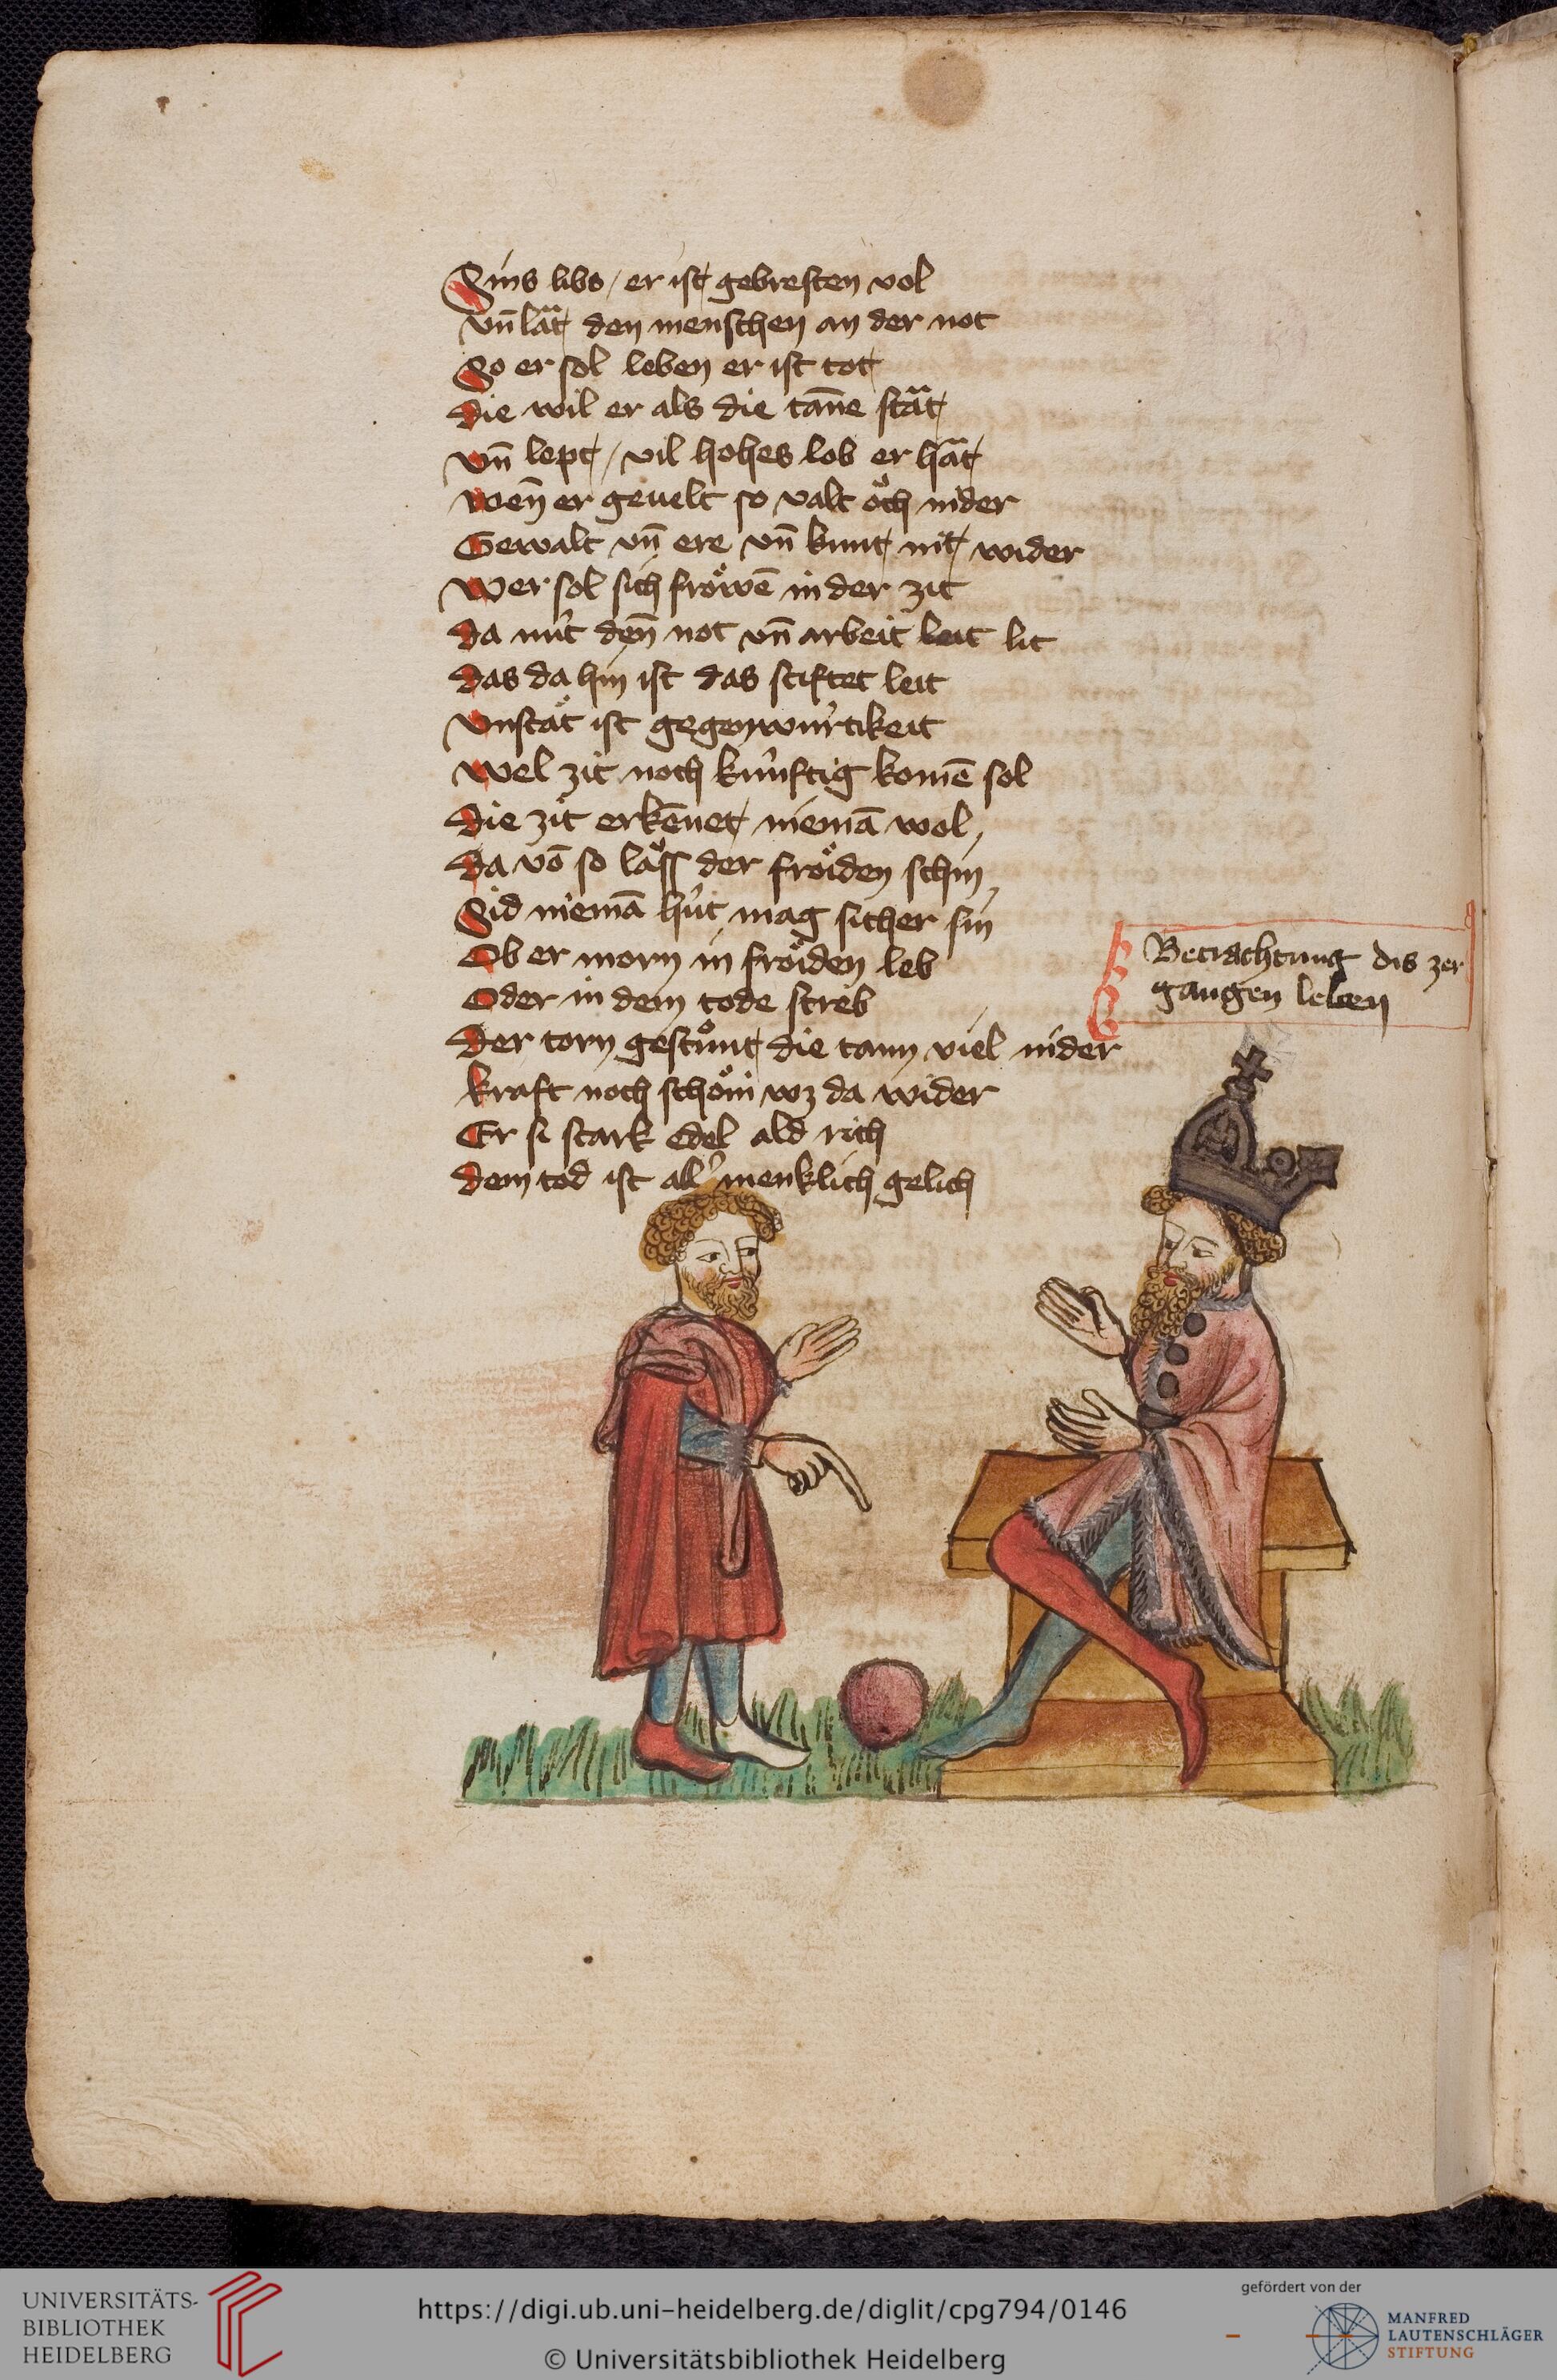 Sins libs / er ist gebresten vol
vn̄ lät den menschen an der not
So er sol leben er ist tot
die wil er als die tan̄e stät
vn̄ lept / vil hohes lob er hät
wen̄ er geuelt so valt och nider
Gewalt vn̄ ere vn̄ kunt nit wider
Wer sol sich fröwē in der zit
da nüt den̄ not vn̄ arbeit leit lit
das da hin ist das stiftet leit
Vnstät ist gegenwürtikeit
wel zit noch künftig komē sol
die zit erkēnet niemā wol
da vō so läss der fröiden schin
Sid niemā hüt mag sicher sin
Ob er morn in fröiden leb
Oder in dem tode streb
der torn gestůnt die tann viel nider
kraft noch schöni wz da wider
Er si stark edel ald rich
dem tod ist all' menklich gelich
Betrachtung dis zer
gangen leben
UNIVERSITÄTS-
BIBLIOTHEK
HEIDELBERG
https://digi.ub.uni-heidelberg.de/diglit/cpg794/0146
© Universitätsbibliothek Heidelberg
gefördert von der
MANFRED
LAUTENSCHLÄGER
STIFTUNG